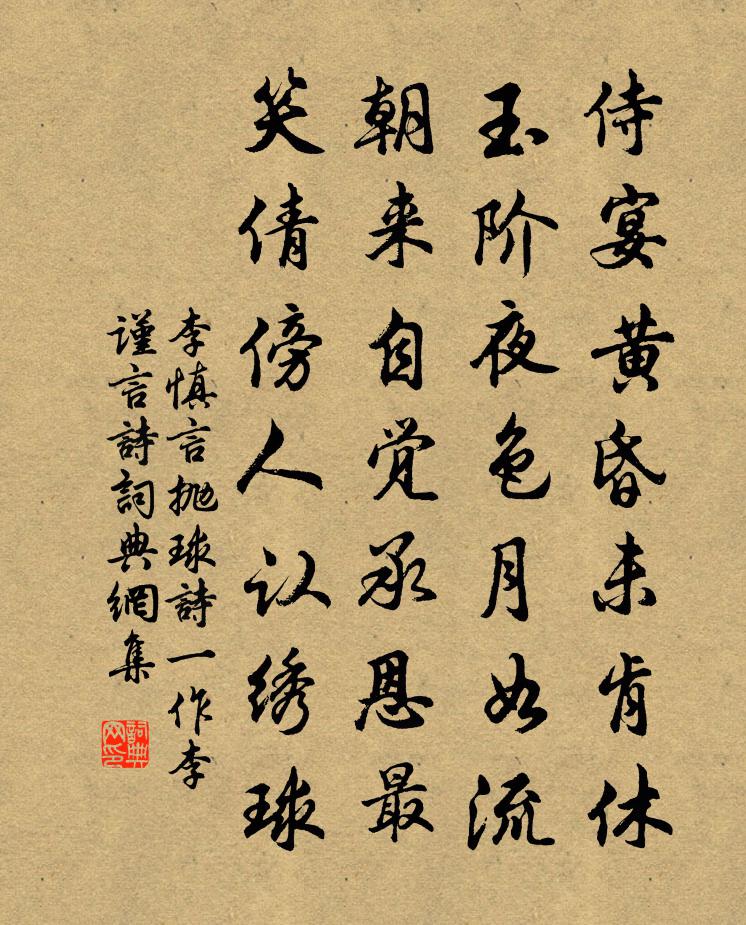 侍宴黄昏未肯休
玉阶夜色月如流
朝来自觉承恩最
笑倩傍人认绣球
李慎言抛球詩一作李
谨言詩詞典網集
詞典网印